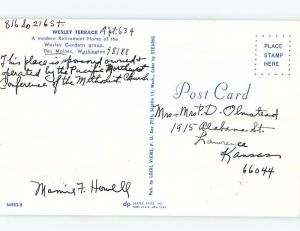 816 So 216 St.
WESLEY TERRACE Apt 634
A modern Retirement Home of the
Wesley Gardens group.
Des Moines, Washington 98188
This place is sponsored, owned &
operated by the Pacific Northwest
Conference of the Methodist Church
Mamie F. Howell
66983-B
Pub. by LOCAL VIEWS, P. O. BOX
PLACE
STAMP
HERE
Post Card
Mr. & Mrs. P. D. Olmstead
1915 Alabama St.
Lawrence
Kansas
66044
dp
DEXTER PRESS, INC.
WEST NYACK, NEW YORK